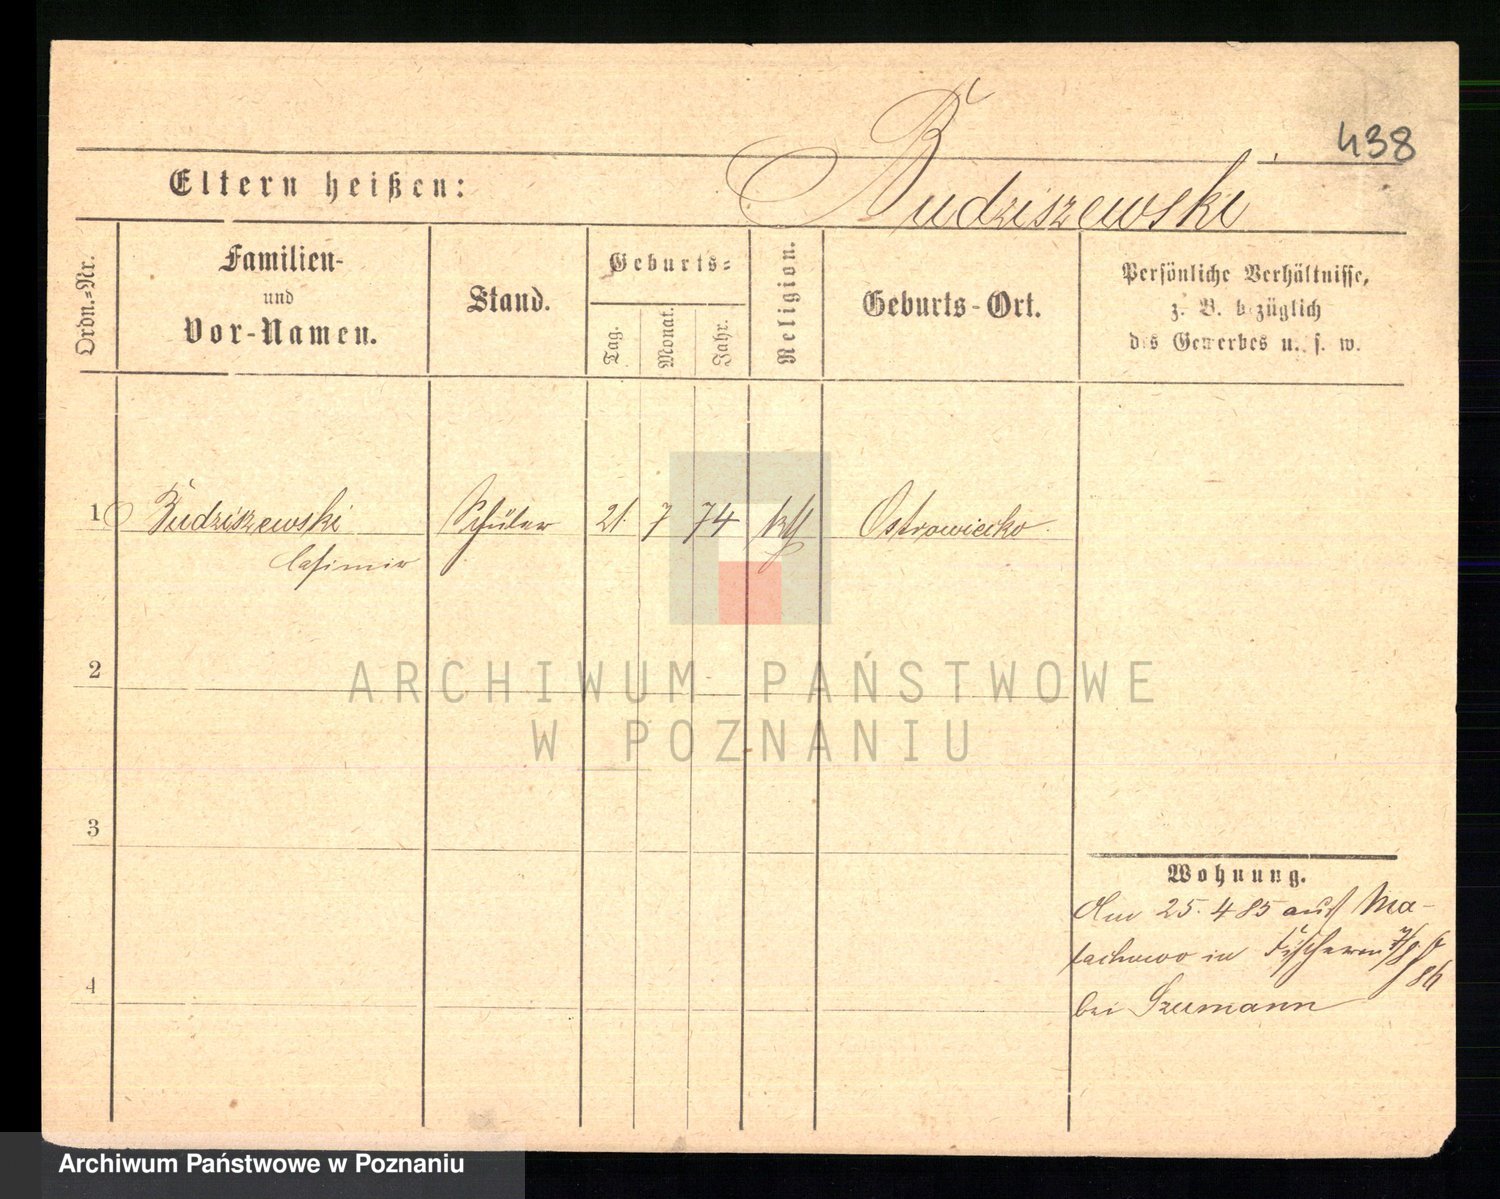 438
Eltern heißen:
Budziszewski
Ordn.=Nr.
Familien-
und
Vor-Namen.
Stand.
Geburts=
Tag.
Monat.
Jahr.
Religion.
Geburts-Ort.
Persönliche Verhältnisse,
z. B. bezüglich
des Gewerbes u. s. w.
1
Budziszewski
Casimir
Schüler
21.
7
74
kth
Ostrowieczko
2
ARCHIWUM PAŃSTWOWE
W POZNANIU
3
Wohnung.
Am 25. 4 85 auf Ma-
in Fischerei
4
bei Szumann
Archiwum Państwowe w Poznaniu